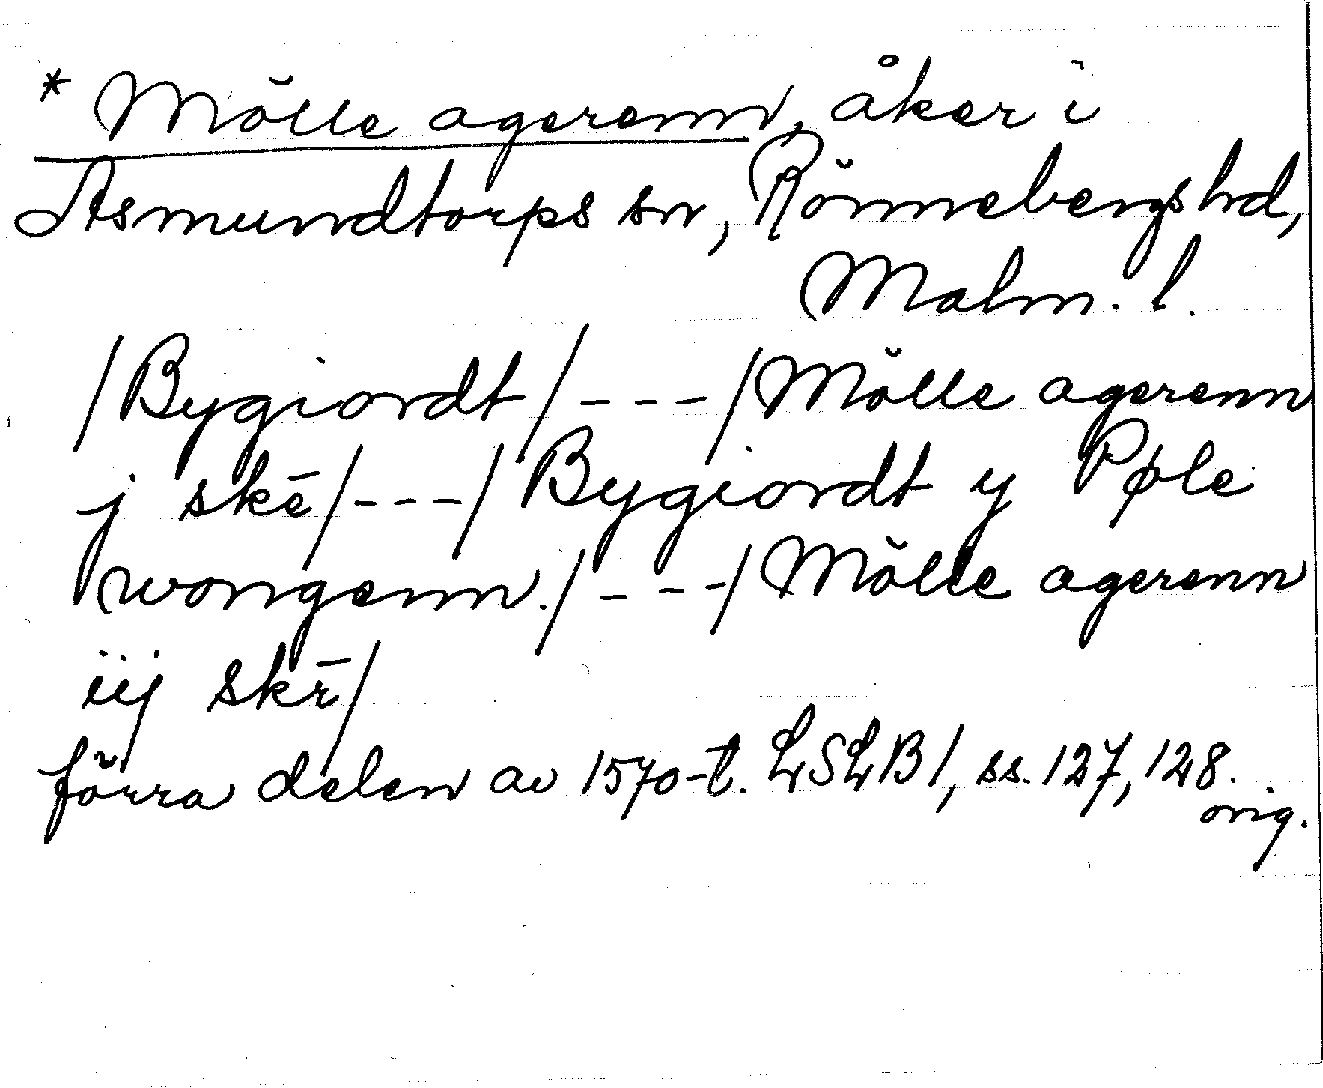 * Mölle agerenn, åker i
Asmundtorps sn, Rönnebergs hd,
Malm. l.
/Bygiordt/---/Mölle agerenn
j skē/---/Bygiordt y Pøle
wongenn./---/Mölle agerenn
iij skr̄/
förra delen av 1570-t. LSLB1, ss. 127, 128.
orig.